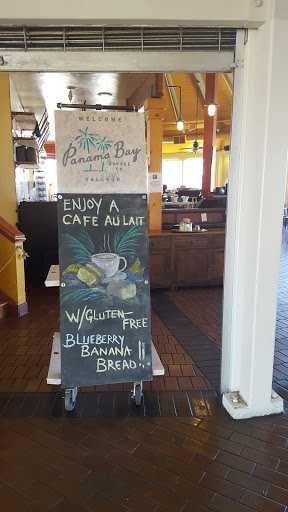 WELCOME
Panama Bay
COFFEE CO.
VALLEJO
ENJOY A
CAFE AU LAIT
W/GLUTEN-
FREE
BLUEBERRY
BANANA
BREAD!!